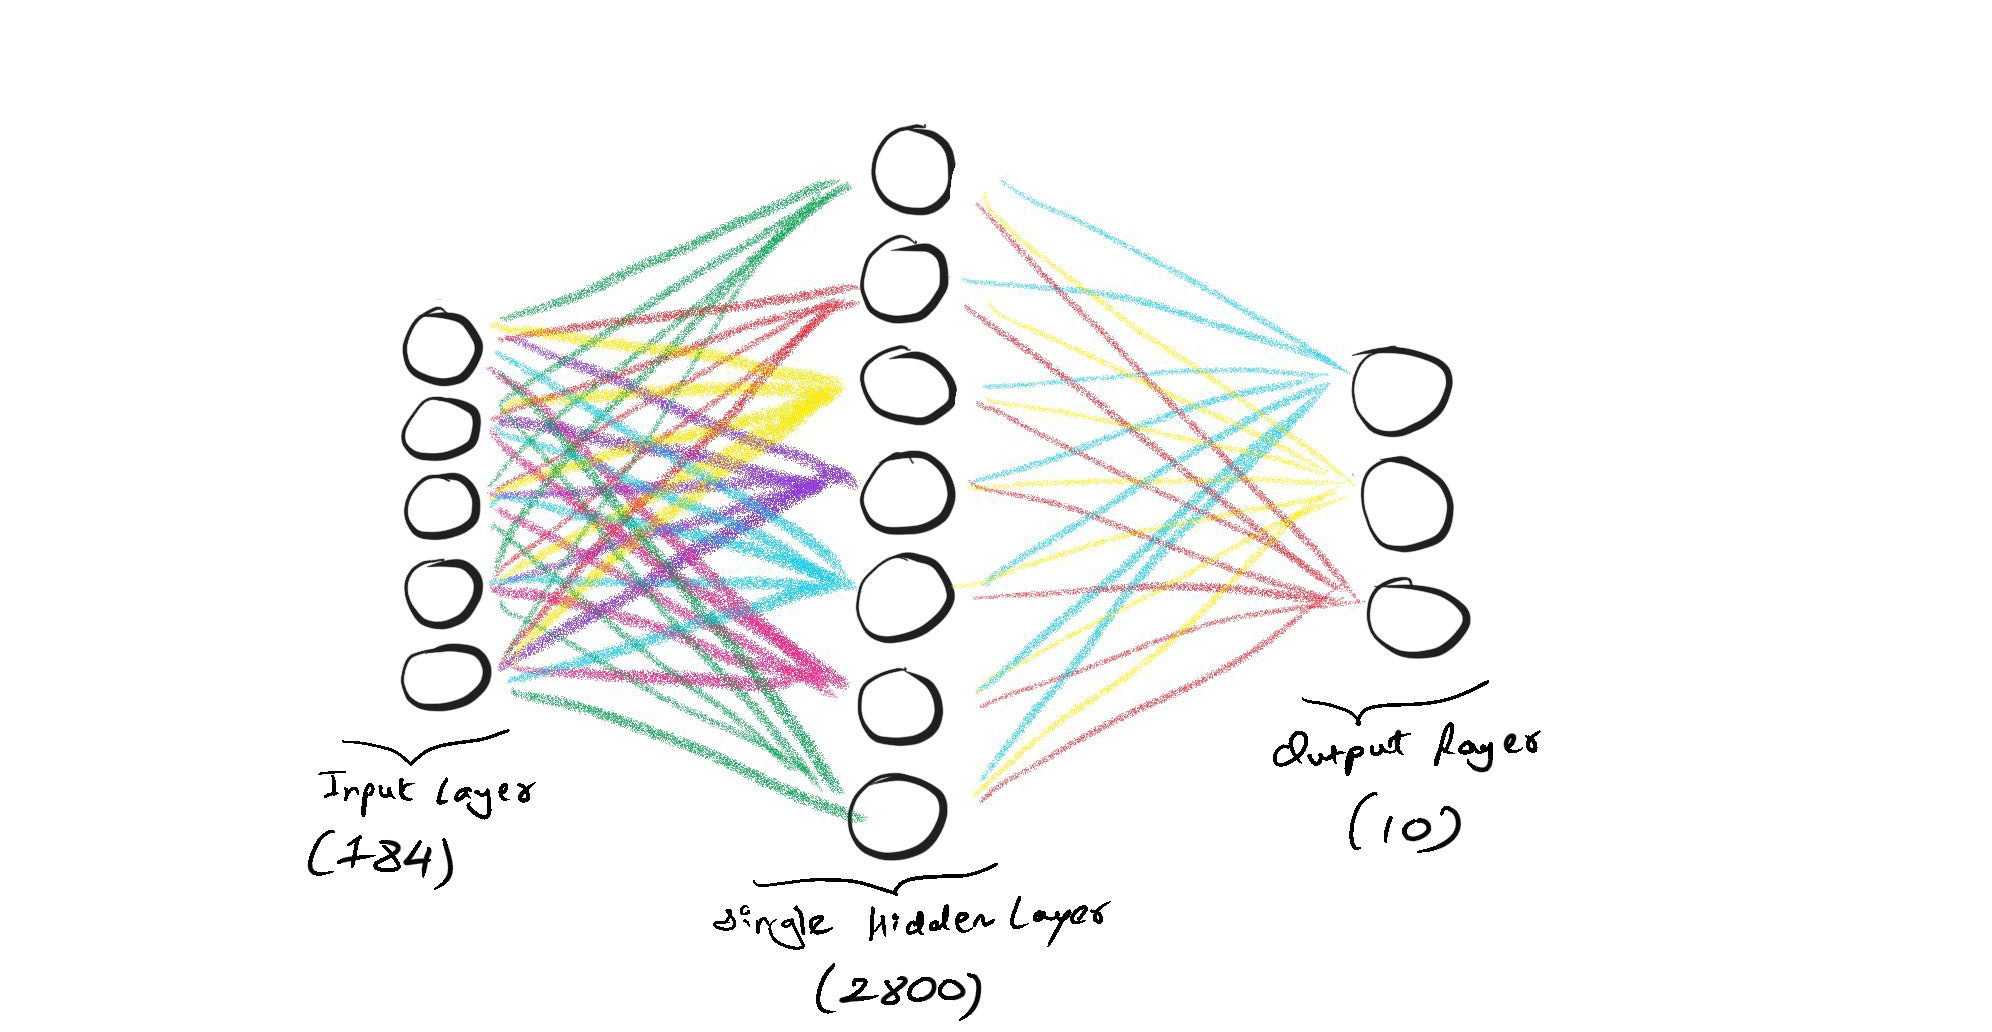 Input Layer
(784)
Single Hidden Layer
(2800)
Output Layer
(10)